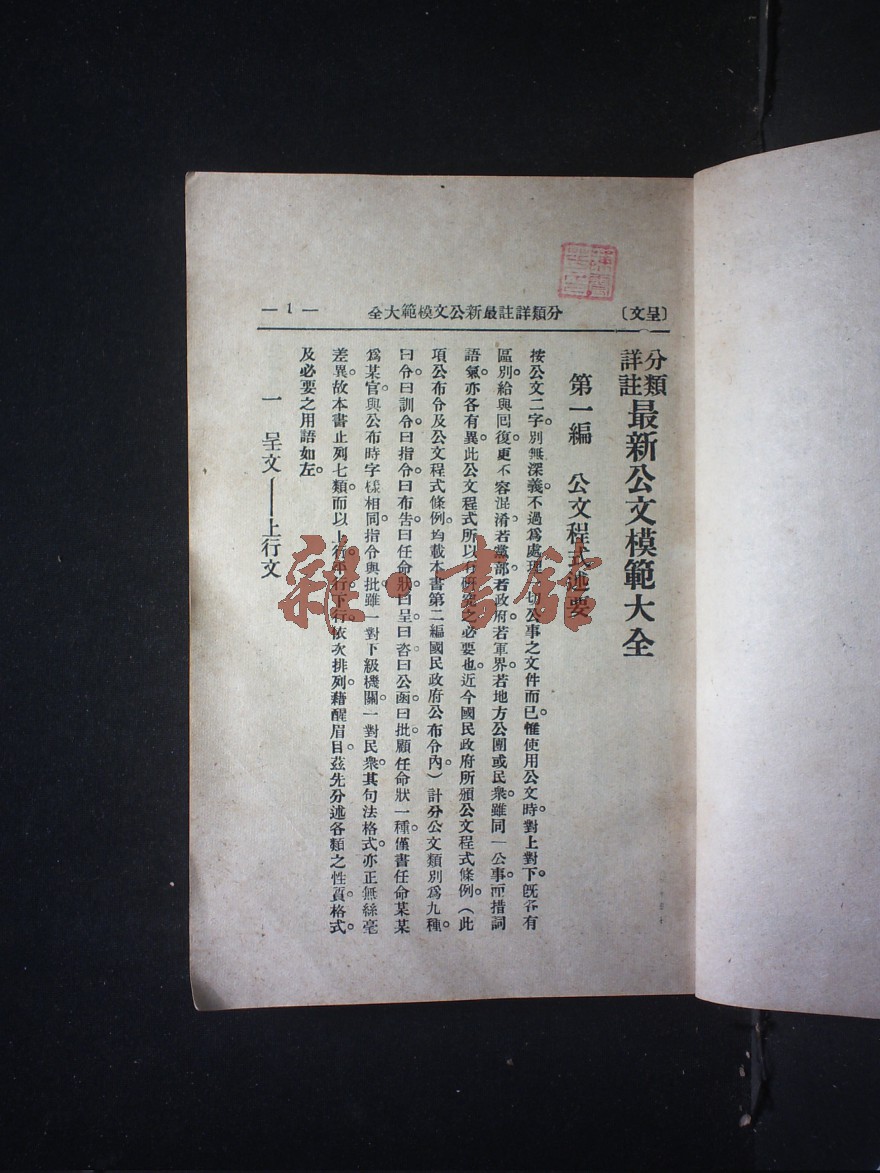 〔呈文〕
分類詳註最新公文模範大全
— 1 —
分類
詳註
最新公文模範大全
第一編 公文程式述要
按公文二字。別無深義。不過爲處理一切公事之文件而已。惟使用公文時。對上對下。旣各有
區別。給與囘復。更不容混淆。若黨部。若政府。若軍界。若地方公團或民衆。雖同一公事。而措詞
語氣。亦各有異。此公文程式所以有研究之必要也。近今國民政府所頒公文程式條例。（此
項公布令及公文程式條例。均載本書第二編國民政府公布令內。）計分公文類別爲九種。
曰令。曰訓令。曰指令。曰布吿。曰任命狀。曰呈。曰咨。曰公函。曰批。顧任命狀一種。僅書任命某某
爲某官。與公布時字樣相同。指令與批。雖一對下級機關。一對民衆。其句法格式。亦正無絲毫
差異。故本書止列七類。而以上行平行下行。依次排列。藉醒眉目。茲先分述各類之性質。格式。
及必要之用語如左。
一 呈文——上行文
雜·書館